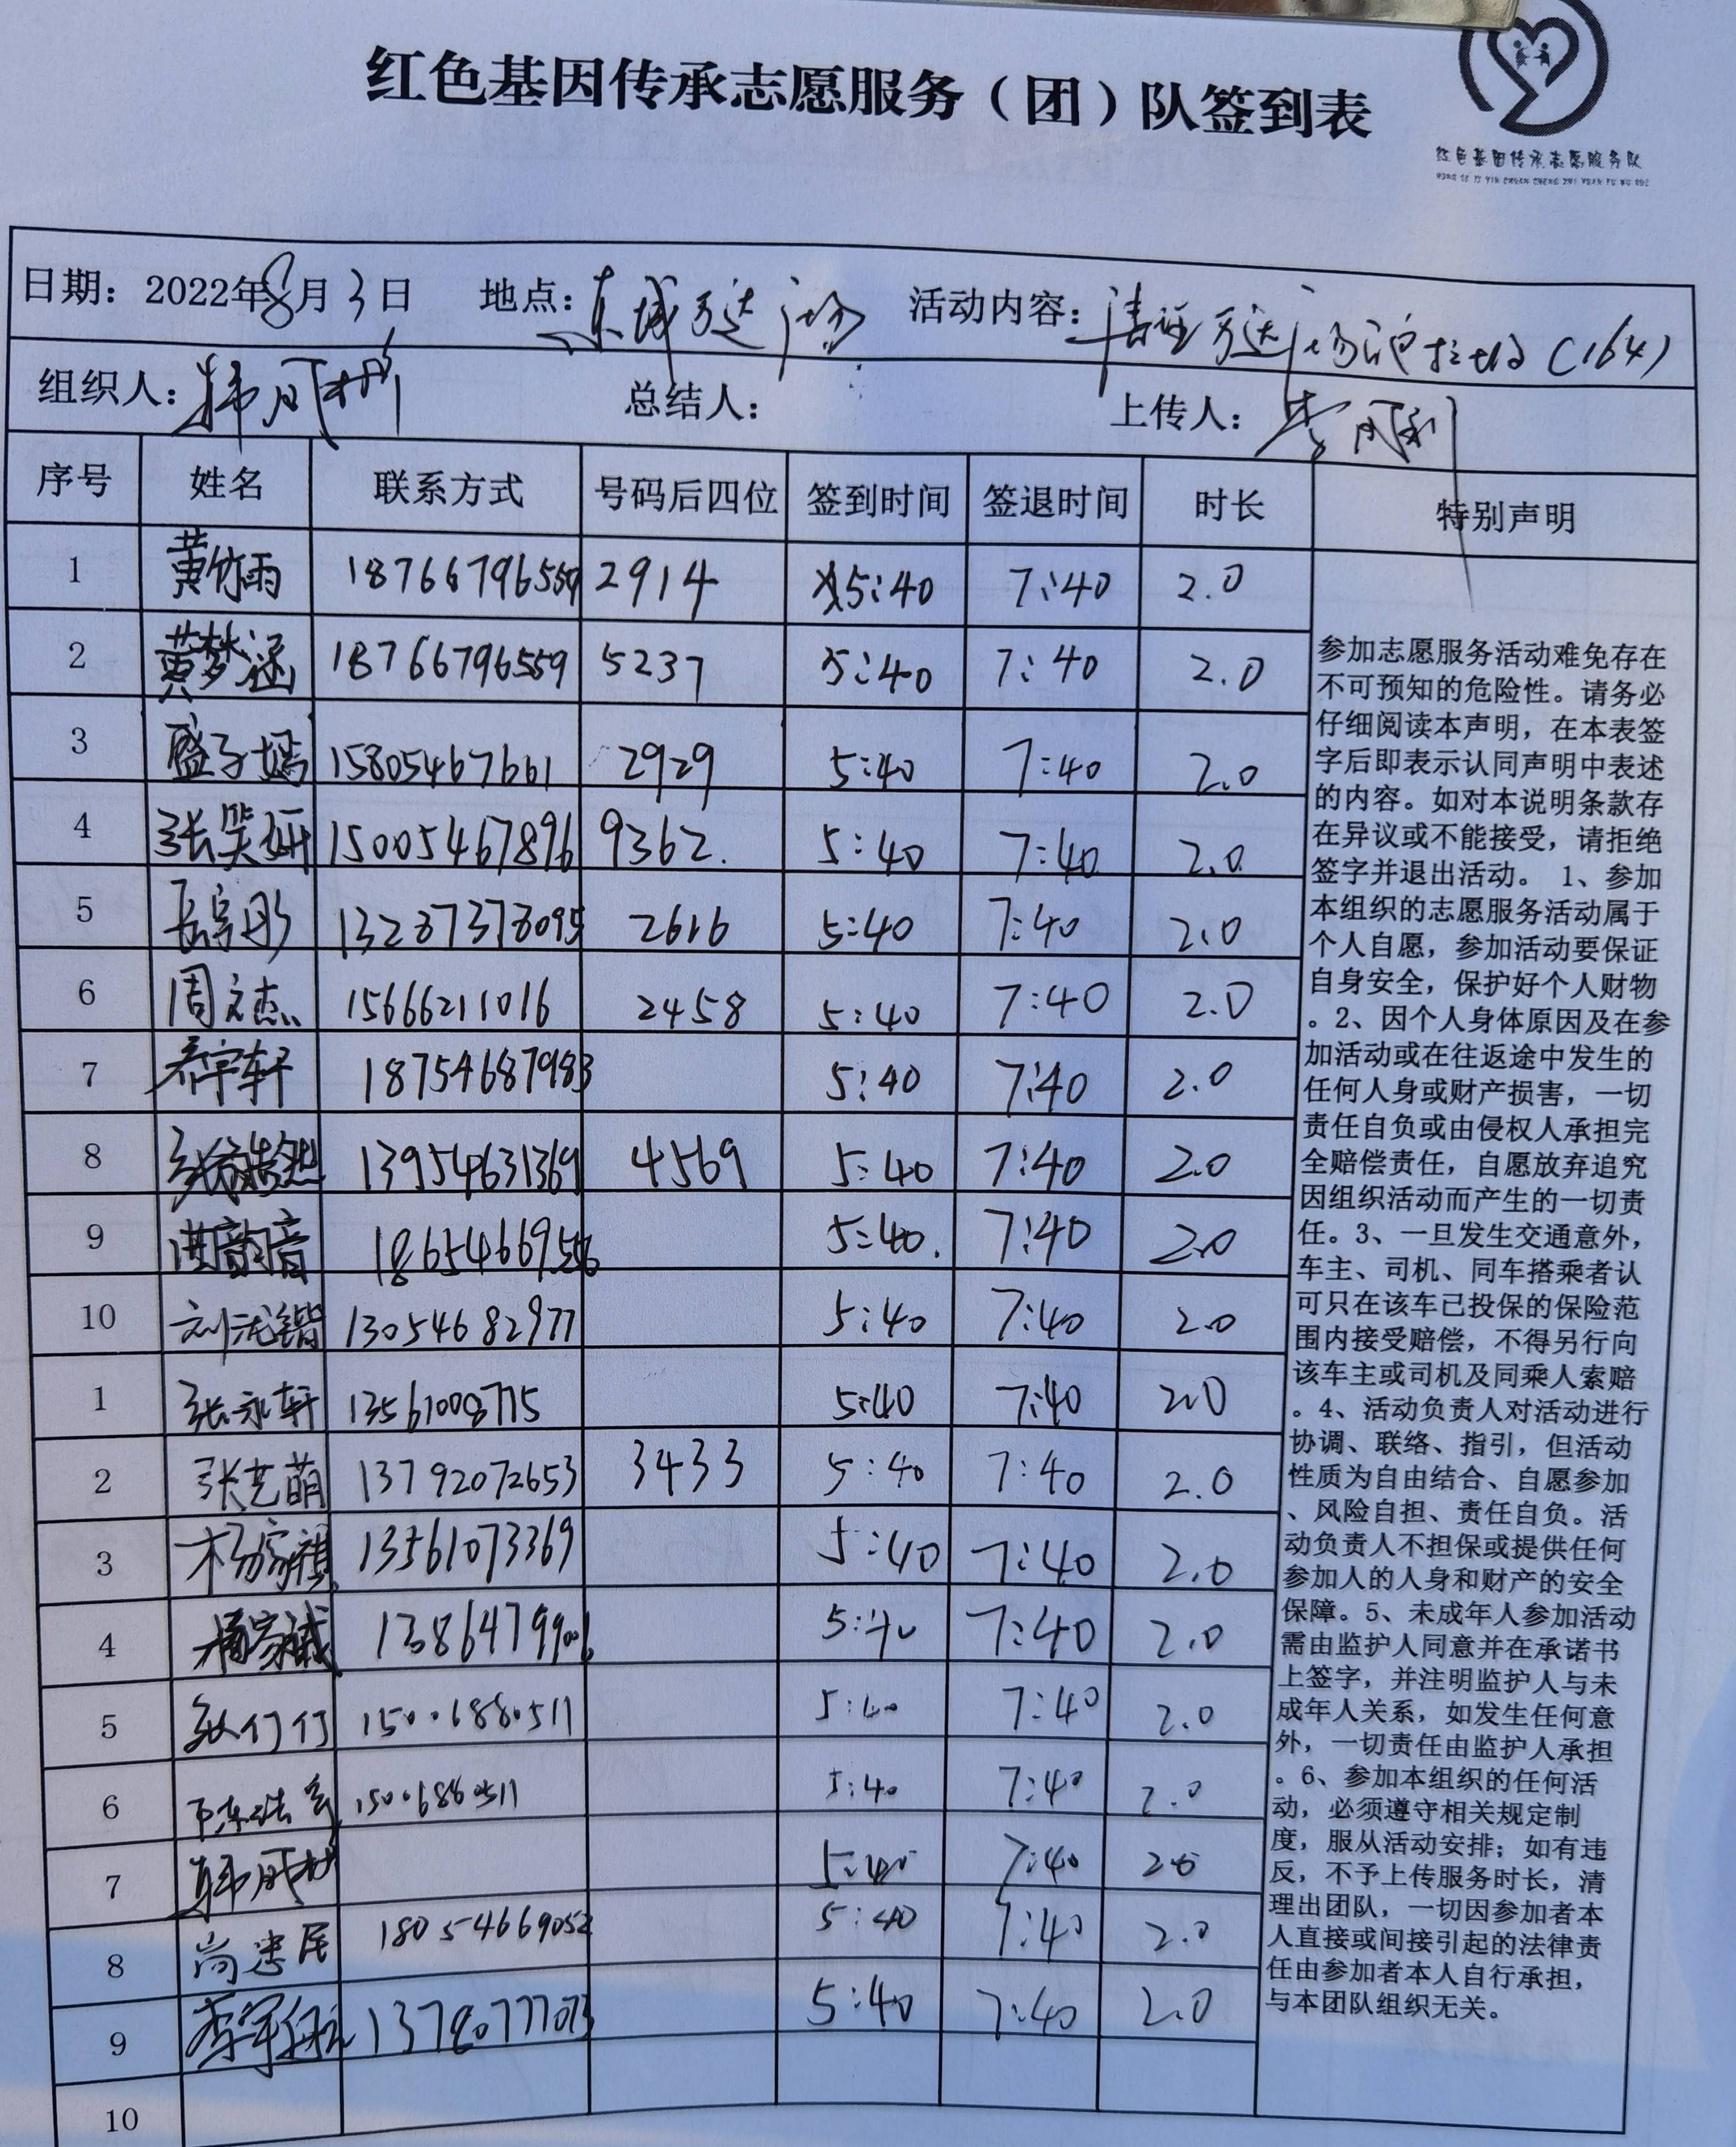 红色基因传承志愿服务（团）队签到表
红色基因传承志愿服务队
日期：2022年8月3日 地点：东城万达广场 活动内容：清理万达广场 (164)
组织人：韩成 总结人： 上传人：李
序号 姓名 联系方式 号码后四位 签到时间 签退时间 时长 特别声明
1 黄竹雨 18766796559 2914 5:40 7:40 2.0
2 黄梦涵 18766796559 5237 5:40 7:40 2.0
3 盛子嫣 15805467661 2929 5:40 7:40 2.0
4 张笑妍 15005467896 9362. 5:40 7:40 2.0
5 13287378095 2616 5:40 7:40 2.0
6 周文杰 15666211016 2458 5:40 7:40 2.0
7 乔宇轩 18754687983 5:40 7:40 2.0
8 13954631369 4569 5:40 7:40 2.0
9 韵音 5:40. 7:40 2.0
10 刘沅锴 13054682977 5:40 7:40 2.0
1 张永轩 13561008775 5:40 7:40 2.0
2 张艺萌 13792072653 3433 5:40 7:40 2.0
3 杨家祺 13561073369 5:40 7:40 2.0
4 家诚 5:40 7:40 2.0
5 仃仃 15006880511 5:40 7:40 2.0
6 陈 5:40 7:40 2.0
7 韩成 5:40 7:40 2.0
8 尚忠民 18054669052 5:40 7:40 2.0
9 李军航 5:40 7:40 2.0
10
参加志愿服务活动难免存在
不可预知的危险性。请务必
仔细阅读本声明，在本表签
字后即表示认同声明中表述
的内容。如对本说明条款存
在异议或不能接受，请拒绝
签字并退出活动。 1、参加
本组织的志愿服务活动属于
个人自愿，参加活动要保证
自身安全，保护好个人财物
。2、因个人身体原因及在参
加活动或在往返途中发生的
任何人身或财产损害，一切
责任自负或由侵权人承担完
全赔偿责任，自愿放弃追究
因组织活动而产生的一切责
任。3、一旦发生交通意外，
车主、司机、同车搭乘者认
可只在该车已投保的保险范
围内接受赔偿，不得另行向
该车主或司机及同乘人索赔
。4、活动负责人对活动进行
协调、联络、指引，但活动
性质为自由结合、自愿参加
、风险自担、责任自负。活
动负责人不担保或提供任何
参加人的人身和财产的安全
保障。5、未成年人参加活动
需由监护人同意并在承诺书
上签字，并注明监护人与未
成年人关系，如发生任何意
外，一切责任由监护人承担
。6、参加本组织的任何活
动，必须遵守相关规定制
度，服从活动安排；如有违
反，不予上传服务时长，清
理出团队，一切因参加者本
人直接或间接引起的法律责
任由参加者本人自行承担，
与本团队组织无关。